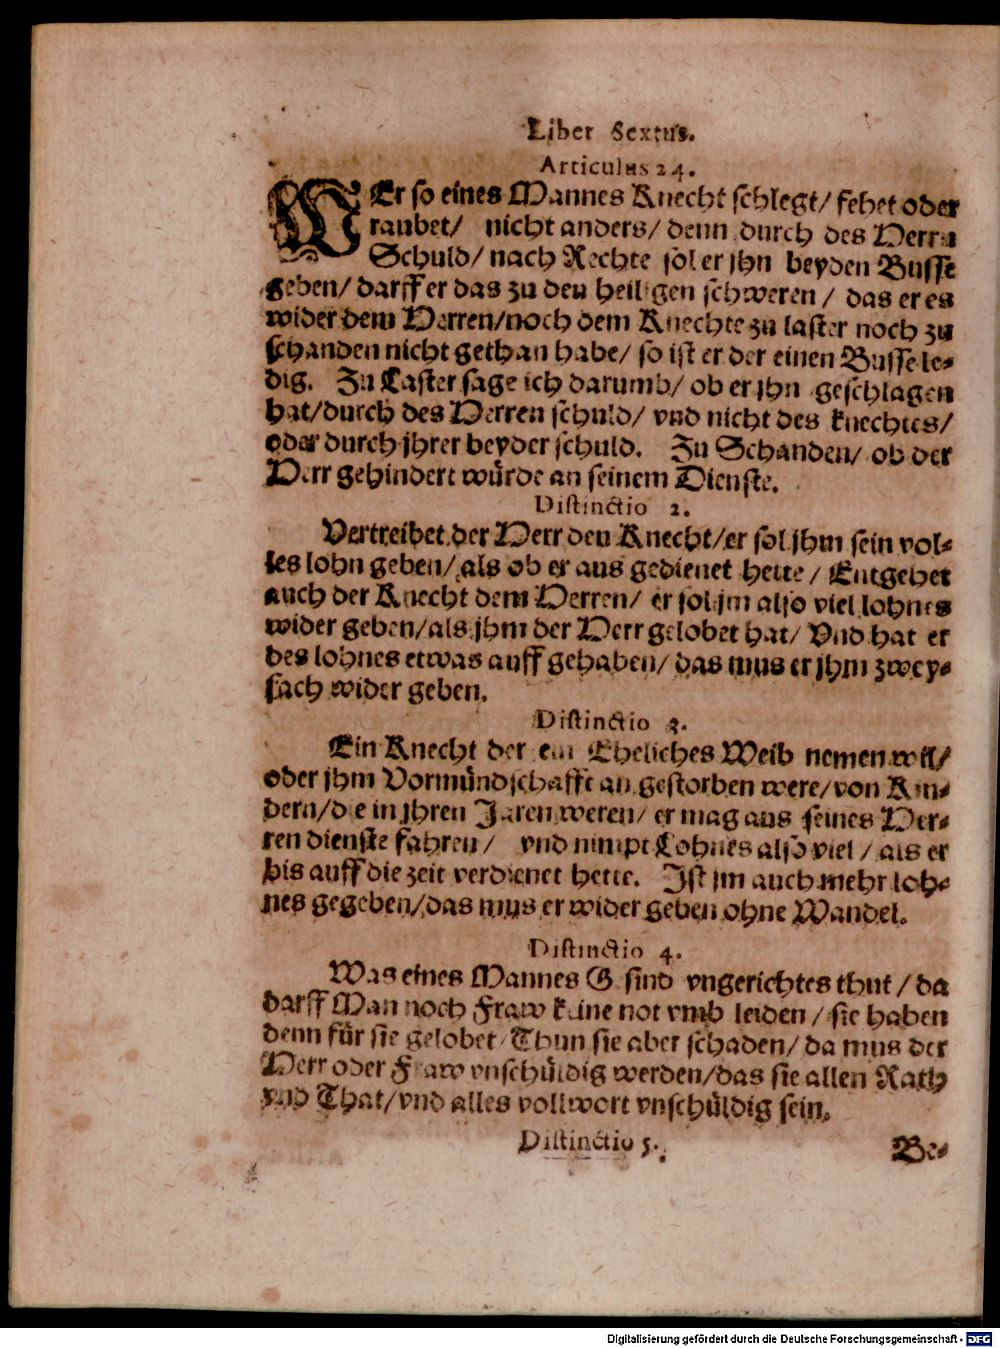 Liber Sextus.
Articulus 24.
WEr so eines Mannes Knecht schlegt/ fehet oder
raubet/ nicht anders/ denn durch des Herrn
Schuld/ nach Rechte sol er jhn beyden Busse
geben/ darff er das zu den heiligen schweren / das er es
wider dem Herren/noch dem Knechte zu laster noch zu
schanden nicht gethan habe/ so ist er der einen Busse le-
dig. Zu Laster sage ich darumb/ ob er jhn geschlagen
hat/durch des Herren schuld/ vnd nicht des knechtes/
oder durch jhrer beyder schuld. Zu Schanden/ ob der
Herr gehindert würde an seinem Dienste.
Distinctio 2.
Vertreibet der Herr den Knecht/er sol jhm sein vol-
les lohn geben/ als ob er aus gedienet hette / Entgehet
auch der Knecht dem Herren/ er sol jm also viel lohnes
wider geben/als jhm der Herr gelobet hat/ Vnd hat er
des lohnes etwas auff gehaben/ das mus er jhm zwey-
fach wider geben.
Distinctio 3.
Ein Knecht der ein Eheliches Weib nemen wil/
oder jhm Vormündschafft an gestorben were/von Kin-
dern/die in jhren Jaren weren/ er mag aus seines Her-
ren dienste fahren / vnd nimpt Lohnes also viel / als er
bis auff die zeit verdienet hette. Ist jm auch mehr loh-
nes gegeben/das mus er wider geben ohne Wandel.
Distinctio 4.
Was eines Mannes Gesind vngerichtes thut / da
darff Man noch Fraw keine not vmb leiden / sie haben
denn für sie gelobet/Thun sie aber schaden/ da mus der
Herr oder Fraw vnschüldig werden/das sie allen Rath
vnd That/vnd alles vollwort vnschüldig sein.
Distinctio 5.
Be-
Digitalisierung gefördert durch die Deutsche Forschungsgemeinschaft - DFG